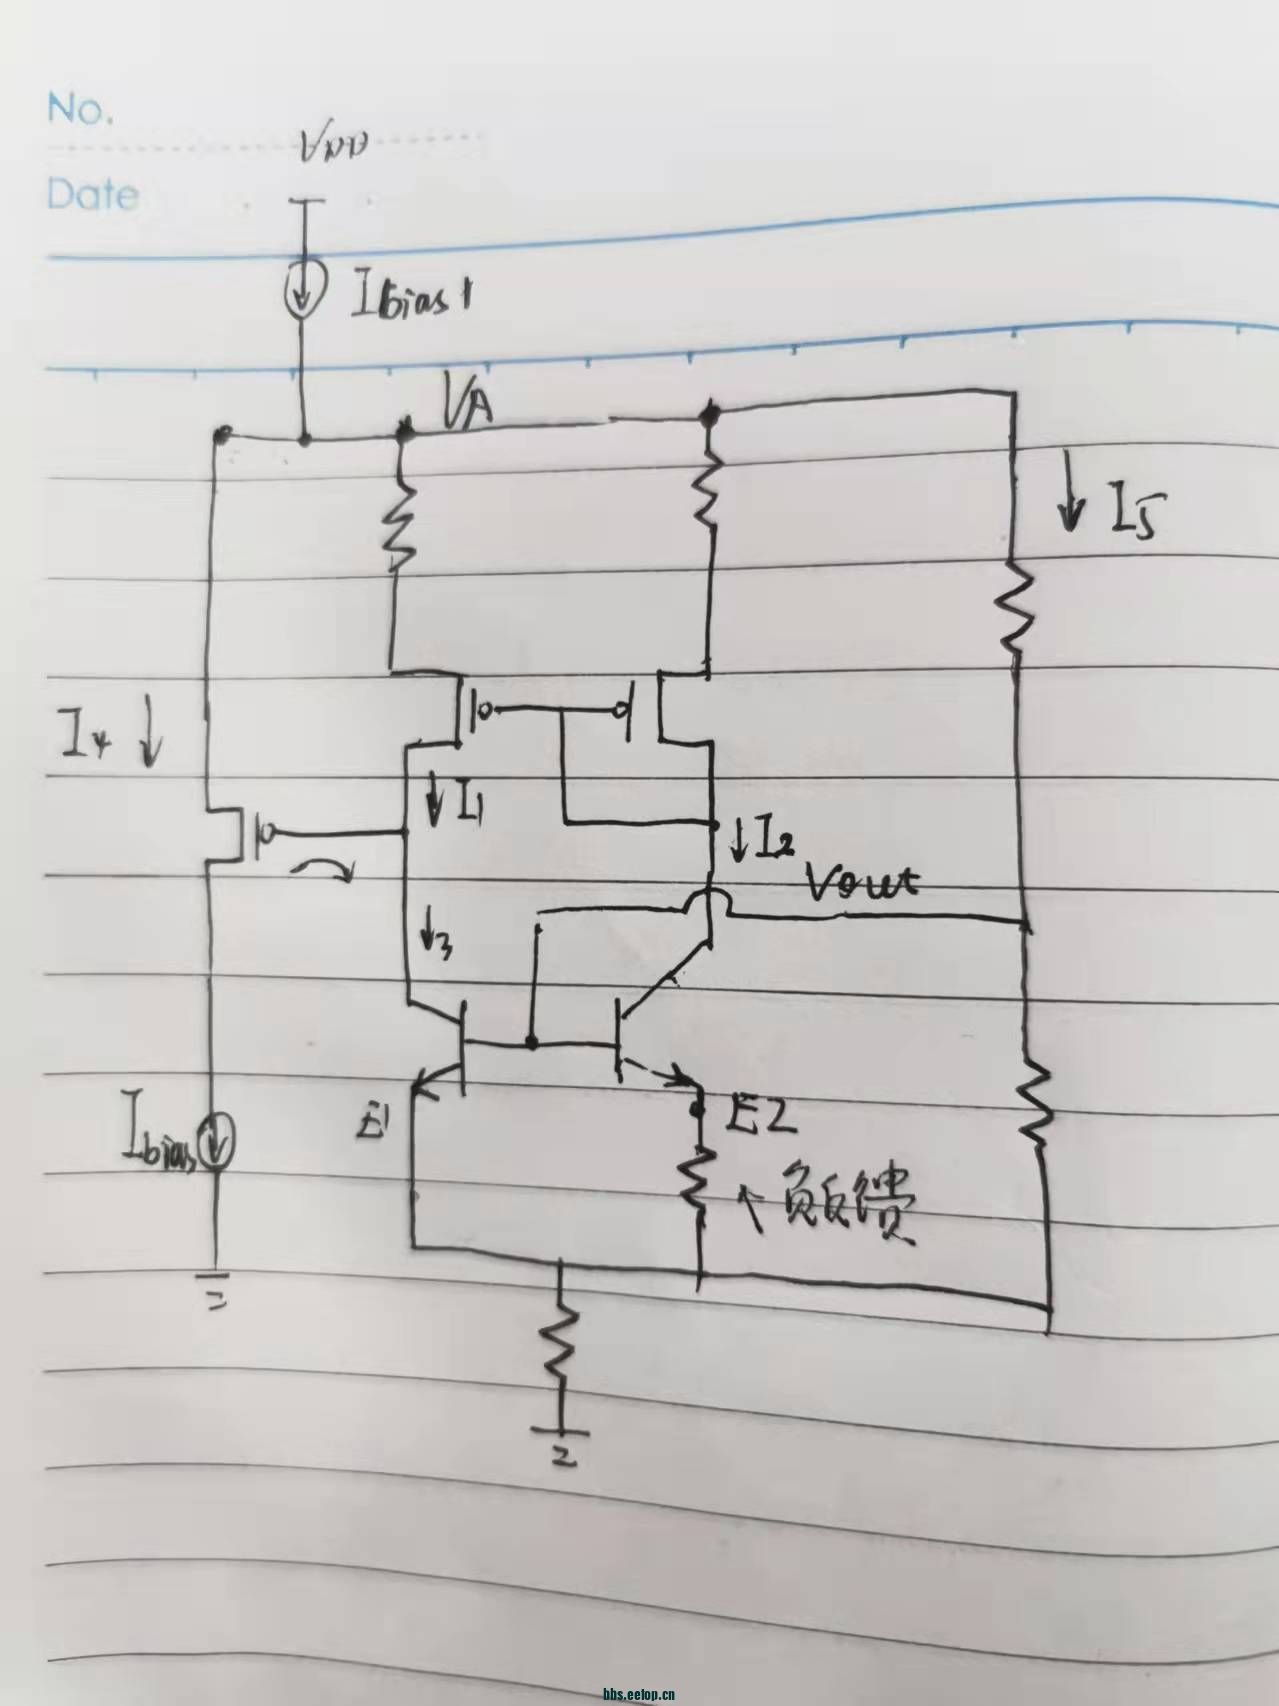 No.
VDD
Date
Ibias1
VA
I5
I4
I1
I2
Vout
3
E1
E2
Ibias
负反馈
bbs.eetop.cn